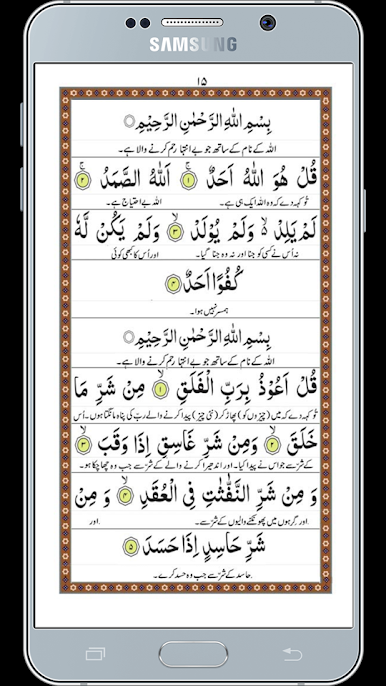 SAMSUNG
١٥
بِسْمِ اللّٰهِ الرَّحْمٰنِ الرَّحِيْمِ
اللہ کے نام کے ساتھ جو بے انتہا رحم کرنے والا ہے۔
قُلْ هُوَ اللّٰهُ اَحَدٌ ۚ ١ اَللّٰهُ الصَّمَدُ ۚ ٢
تُو کہہ دے کہ وہ اللہ ایک ہی ہے۔ اللہ بے احتیاج ہے۔
لَمْ يَلِدْ ۙ وَلَمْ يُوْلَدْ ۙ ٣ وَلَمْ يَكُنْ لَّهٗ
نہ اُس نے کسی کو جنا اور نہ وہ جنا گیا۔ اور اُس کا کبھی کوئی
كُفُوًا اَحَدٌ ٤
ہمسر نہیں ہوا۔
بِسْمِ اللّٰهِ الرَّحْمٰنِ الرَّحِيْمِ
اللہ کے نام کے ساتھ جو بے انتہا رحم کرنے والا ہے۔
قُلْ اَعُوْذُ بِرَبِّ الْفَلَقِ ۙ ١ مِنْ شَرِّ مَا
تُو کہہ دے کہ میں (چیزوں کو) پھاڑ کر (نئی چیز) پیدا کرنے والے ربّ کی پناہ مانگتا ہوں۔ اُس
خَلَقَ ۙ ٢ وَمِنْ شَرِّ غَاسِقٍ اِذَا وَقَبَ ۙ ٣
کے شر سے جو اس نے پیدا کیا۔ اور اندھیرا کرنے والے کے شر سے جب وہ چھا چکا ہو۔
وَ مِنْ شَرِّ النَّفّٰثٰتِ فِي الْعُقَدِ ۙ ٤ وَ مِنْ
اور گرہوں میں پھونکنے والیوں کے شر سے۔ اور
شَرِّ حَاسِدٍ اِذَا حَسَدَ ٥
حاسد کے شر سے جب وہ حسد کرے۔